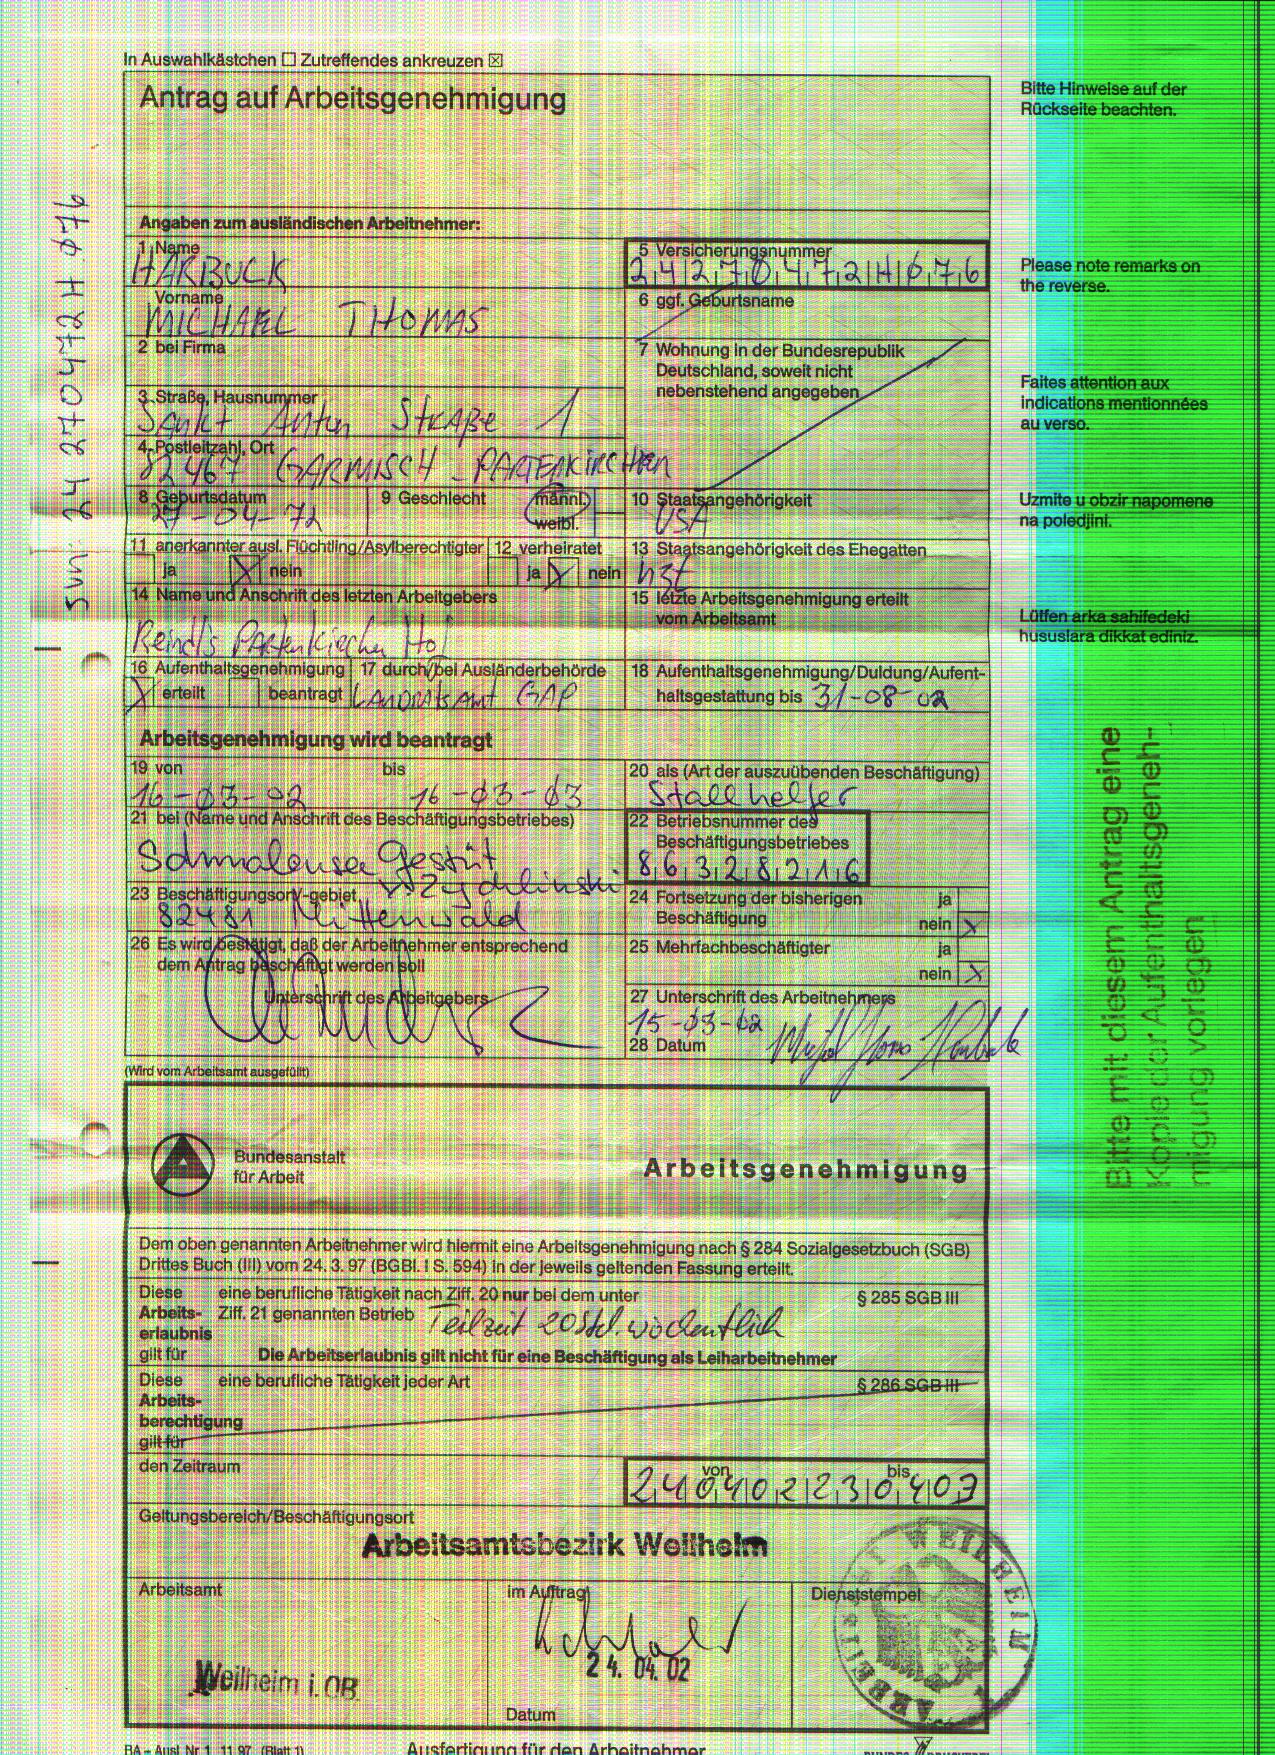 In Auswahlkästchen ☐ Zutreffendes ankreuzen ☒
Antrag auf Arbeitsgenehmigung
Bitte Hinweise auf der
Rückseite beachten.
Angaben zum ausländischen Arbeitnehmer:
1 Name
HARBUCK
5 Versicherungsnummer
24270472H076
Vorname
MICHAEL THOMAS
6 ggf. Geburtsname
Please note remarks on
the reverse.
2 bei Firma
7 Wohnung in der Bundesrepublik
Deutschland, soweit nicht
nebenstehend angegeben
3 Straße, Hausnummer
Sankt Anton Straße 1
Faites attention aux
indications mentionnées
au verso.
4 Postleitzahl, Ort
82467 GARMISCH-PARTENKIRCHEN
8 Geburtsdatum
27-04-72
9 Geschlecht
männl.
weibl.
10 Staatsangehörigkeit
USA
Uzmite u obzir napomene
na poledjini.
11 anerkannter ausl. Flüchtling/Asylberechtigter
ja X nein
12 verheiratet
ja X nein
13 Staatsangehörigkeit des Ehegatten
14 Name und Anschrift des letzten Arbeitgebers
Reindls Partenkirchen Hof
15 letzte Arbeitsgenehmigung erteilt
vom Arbeitsamt
Lütfen arka sahifedeki
hususlara dikkat ediniz.
16 Aufenthaltsgenehmigung
X erteilt beantragt
17 durch/bei Ausländerbehörde
LANDRATSAMT GAP
18 Aufenthaltsgenehmigung/Duldung/Aufent-
haltsgestattung bis 31-08-02
Arbeitsgenehmigung wird beantragt
19 von bis
16-03-02 16-03-03
20 als (Art der auszuübenden Beschäftigung)
Stallhelfer
21 bei (Name und Anschrift des Beschäftigungsbetriebes)
Schmalensee Gestüt
v. Zydlinski
22 Betriebsnummer des
Beschäftigungsbetriebes
86328216
23 Beschäftigungsort/-gebiet
82481 Mittenwald
24 Fortsetzung der bisherigen
Beschäftigung
ja
nein X
25 Mehrfachbeschäftigter
ja
nein X
26 Es wird bestätigt, daß der Arbeitnehmer entsprechend
dem Antrag beschäftigt werden soll
Unterschrift des Arbeitgebers
27 Unterschrift des Arbeitnehmers
15-03-02
28 Datum
(Wird vom Arbeitsamt ausgefüllt)
Bundesanstalt
für Arbeit
Arbeitsgenehmigung
Dem oben genannten Arbeitnehmer wird hiermit eine Arbeitsgenehmigung nach § 284 Sozialgesetzbuch (SGB)
Drittes Buch (III) vom 24. 3. 97 (BGBl. I S. 594) in der jeweils geltenden Fassung erteilt.
Diese
Arbeits-
erlaubnis
gilt für
eine berufliche Tätigkeit nach Ziff. 20 nur bei dem unter § 285 SGB III
Ziff. 21 genannten Betrieb Teilzeit 20 Std. wöchentlich
Die Arbeitserlaubnis gilt nicht für eine Beschäftigung als Leiharbeitnehmer
Diese
Arbeits-
berechtigung
gilt für
eine berufliche Tätigkeit jeder Art § 286 SGB III
den Zeitraum
von bis
240402230403
Geltungsbereich/Beschäftigungsort
Arbeitsamtsbezirk Weilheim
Arbeitsamt
Weilheim i. OB
im Auftrag
24. 04. 02
Datum
Dienststempel
ARBEITSAMT WEILHEIM
BA – Ausl. Nr. 1 11.97 (Blatt 1)
Ausfertigung für den Arbeitnehmer
BUNDESDRUCKEREI
SVN: 24 270472 H 076
Bitte mit diesem Antrag eine
Kopie der Aufenthaltsgeneh-
migung vorlegen